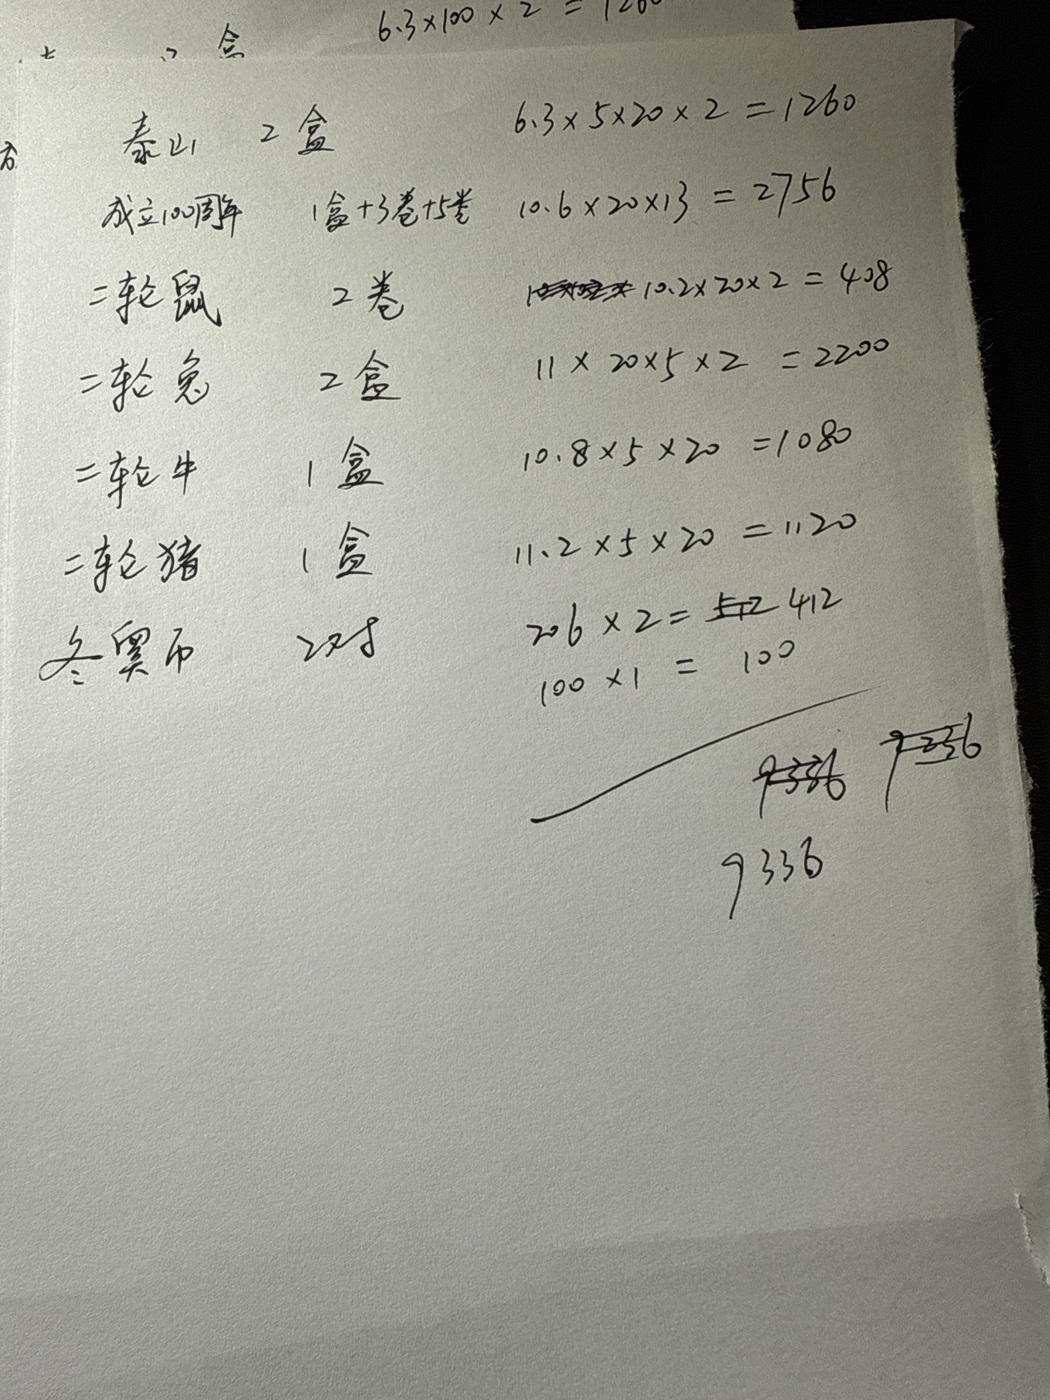 6.3×100×2=1260
2盒
泰山 2盒 6.3×5×20×2=1260
成立100周年 1盒+3卷+5卷 10.6×20×13=2756
二轮鼠 2卷 10.2×20×2=408
二轮兔 2盒 11×20×5×2=2200
二轮牛 1盒 10.8×5×20=1080
二轮猪 1盒 11.2×5×20=1120
冬奥币 2对 206×2=512 412
100×1=100
9336 9236
9336